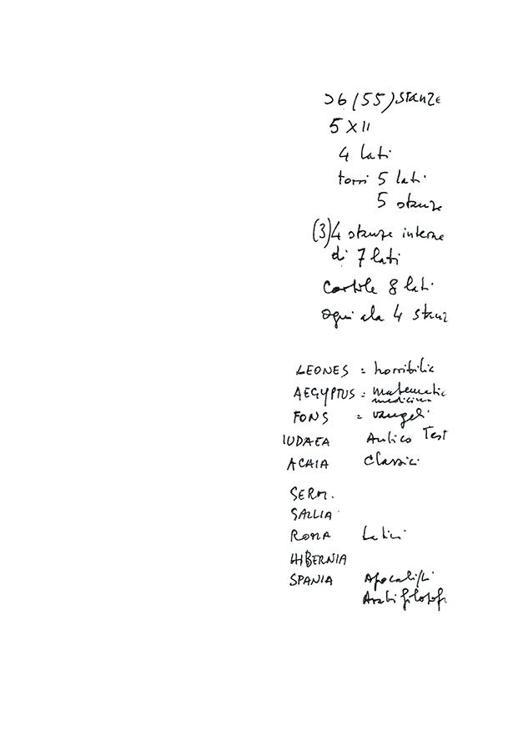 56 (55) stanze
5 X 11
4 lati
torri 5 lati
5 stanze
(3) 4 stanze interne
di 7 lati
Cortile 8 lati
ogni ala 4 stanz
LEONES = horribilia
AEGYPTUS = matematic
medicina
FONS = vangeli
IUDAEA Antico Test
ACHIA Classici
GERM.
GALLIA
ROMA Latini
HIBERNIA
SPANIA Apocalissi
Arabi filosofi